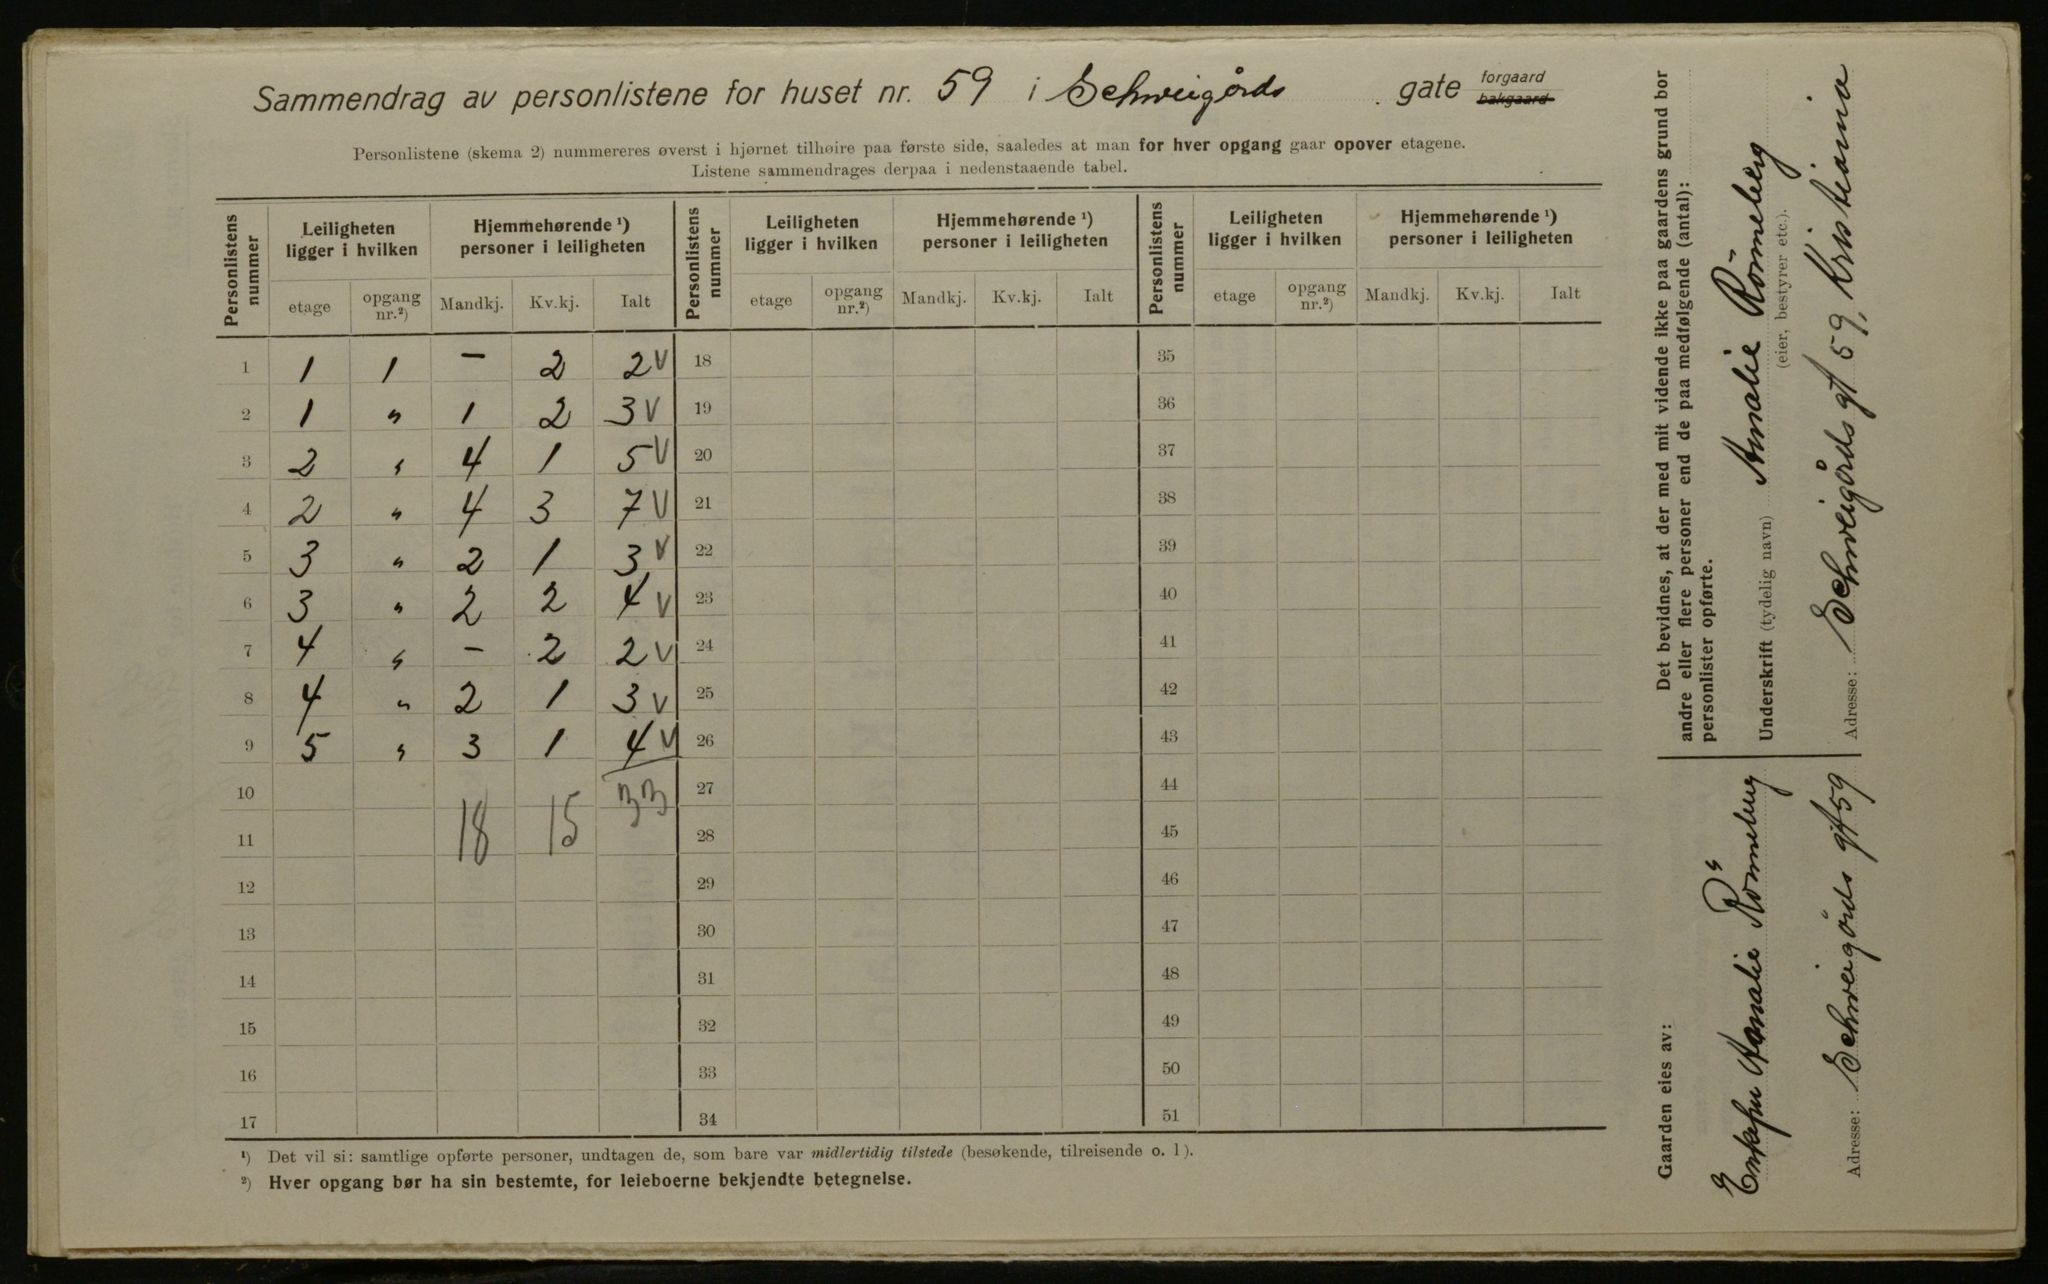 Sammendrag av personlistene for huset nr. 59 i Schweigårds gate forgaard bakgaard
Personlistene (skema 2) nummereres øverst i hjørnet tilhøire paa første side, saaledes at man for hver opgang gaar opover etagene.
Listene sammendrages derpaa i nedenstaaende tabel.
Personlistens nummer | Leiligheten ligger i hvilken | Hjemmehørende ¹) personer i leiligheten | Personlistens nummer | Leiligheten ligger i hvilken | Hjemmehørende ¹) personer i leiligheten | Personlistens nummer | Leiligheten ligger i hvilken | Hjemmehørende ¹) personer i leiligheten
etage | opgang nr.²) | Mandkj. | Kv.kj. | Ialt | etage | opgang nr.²) | Mandkj. | Kv.kj. | Ialt | etage | opgang nr.²) | Mandkj. | Kv.kj. | Ialt
1 | 1 | 1 | – | 2 | 2 V | 18 | 35
2 | 1 | " | 1 | 2 | 3 V | 19 | 36
3 | 2 | " | 4 | 1 | 5 V | 20 | 37
4 | 2 | " | 4 | 3 | 7 V | 21 | 38
5 | 3 | " | 2 | 1 | 3 V | 22 | 39
6 | 3 | " | 2 | 2 | 4 V | 23 | 40
7 | 4 | " | – | 2 | 2 V | 24 | 41
8 | 4 | " | 2 | 1 | 3 V | 25 | 42
9 | 5 | " | 3 | 1 | 4 V | 26 | 43
10 | 33 | 27 | 44
11 | 18 | 15 | 28 | 45
12 | 29 | 46
13 | 30 | 47
14 | 31 | 48
15 | 32 | 49
16 | 33 | 50
17 | 34 | 51
¹) Det vil si: samtlige opførte personer, undtagen de, som bare var midlertidig tilstede (besøkende, tilreisende o. l).
²) Hver opgang bør ha sin bestemte, for leieboerne bekjendte betegnelse.
Det bevidnes, at der med mit vidende ikke paa gaardens grund bor
andre eller flere personer end de paa medfølgende (antal):
personlister opførte.
Underskrift (tydelig navn) Amalie Römeberg
(eier, bestyrer etc.).
Adresse: Schweigårds gt 59, Kristiania
Gaarden eies av:
Enkefru Amalie Römeberg
Adresse: Schweigårds gt 59